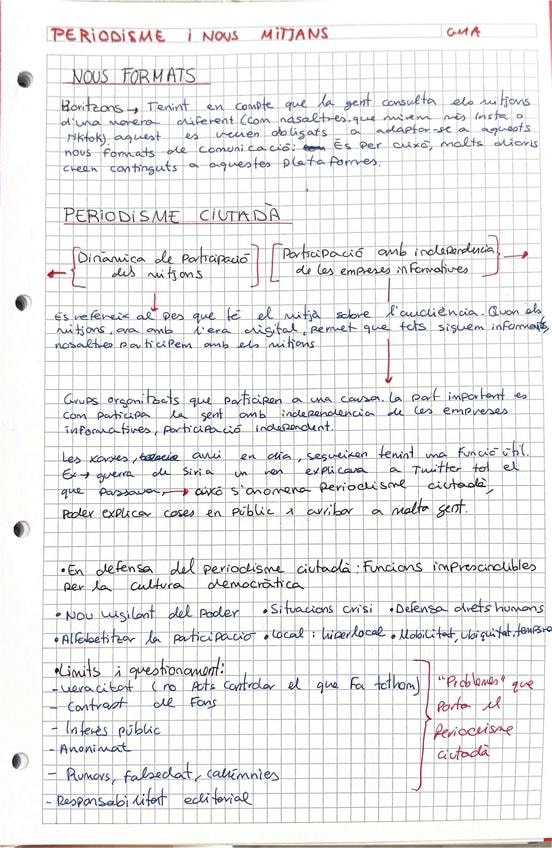 PERIODISME i NOUS MITJANS
NOUS FORMATS
Horitzons → Tenint en compte que la gent consulta els mitjons
d'una manera diferent (com nosaltres, que mirem més Insta o
Tiktok) aquest es veuen obligats a adaptar-se a aquests
nous formats de comunicació: És per això, molts diaris
creen continguts a aquestes plataformes.
PERIODISME CIUTADÀ
Dinàmica de participació
dels mitjons
Participació amb independència
de les empreses informatives
Es refereix al pes que té el mitjà sobre l'audiència. Quan els
mitjons, ara amb l'era digital, permet que tots siguem informats,
nosaltres participem amb els mitjons
Grups organitzats que participen a una causa. La part important es
com participa la gent amb independencia de les empreses
informatives, participació independent.
Les xarxes, avui en dia, segueixen tenint una funció útil.
Ex → guerra de Siria un nen explicava a Twitter tot el
que passava, → això s'anomena periodisme ciutadà,
poder explicar coses en públic i arribar a molta gent.
• En defensa del periodisme ciutadà: Funcions imprescindibles
per la cultura democràtica
• Nou vigilant del poder • Situacions crisi • Defensa drets humans
• Alfabetitzar la participació • local i hiperlocal • Mobilitat, ubiquitat, tempora
• Límits i questionament:
- Veracitat (no pots controlar el que fa tothom)
- Contrast de fons
- Interès públic
- Anonimat
- Rumors, falsedat, calúmnies
- Responsabilitat editorial
"Problemes" que
porta el
periodisme
ciutadà